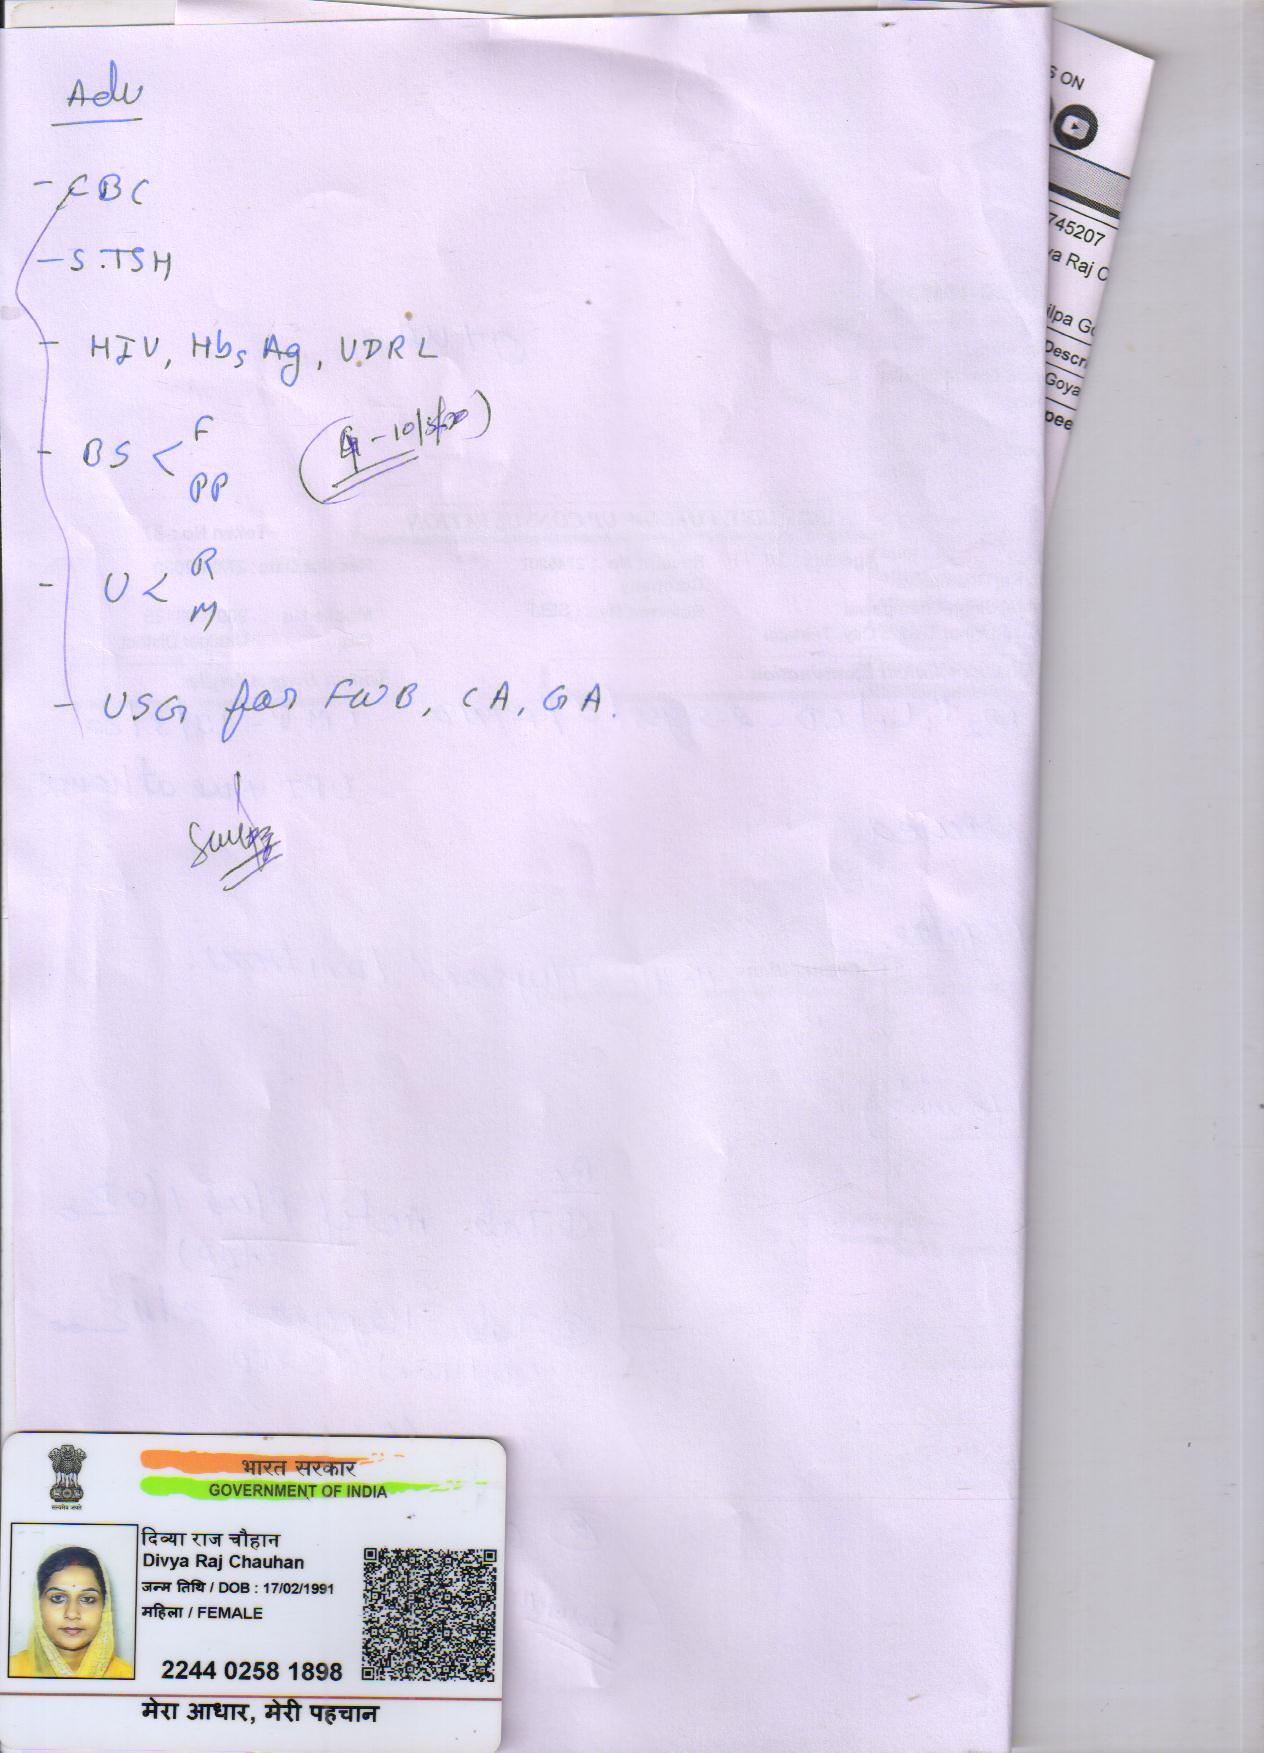 Adv
- CBC
- S.TSH
- HIV, HbsAg, VDRL
- BS < F
PP
- U < R
M
- USG for FWB, CA, GA.
S ON
745207
ya Raj C
ilpa Go
Descri
Goya
pee
भारत सरकार
GOVERNMENT OF INDIA
दिव्या राज चौहान
Divya Raj Chauhan
जन्म तिथि / DOB : 17/02/1991
महिला / FEMALE
2244 0258 1898
मेरा आधार, मेरी पहचान